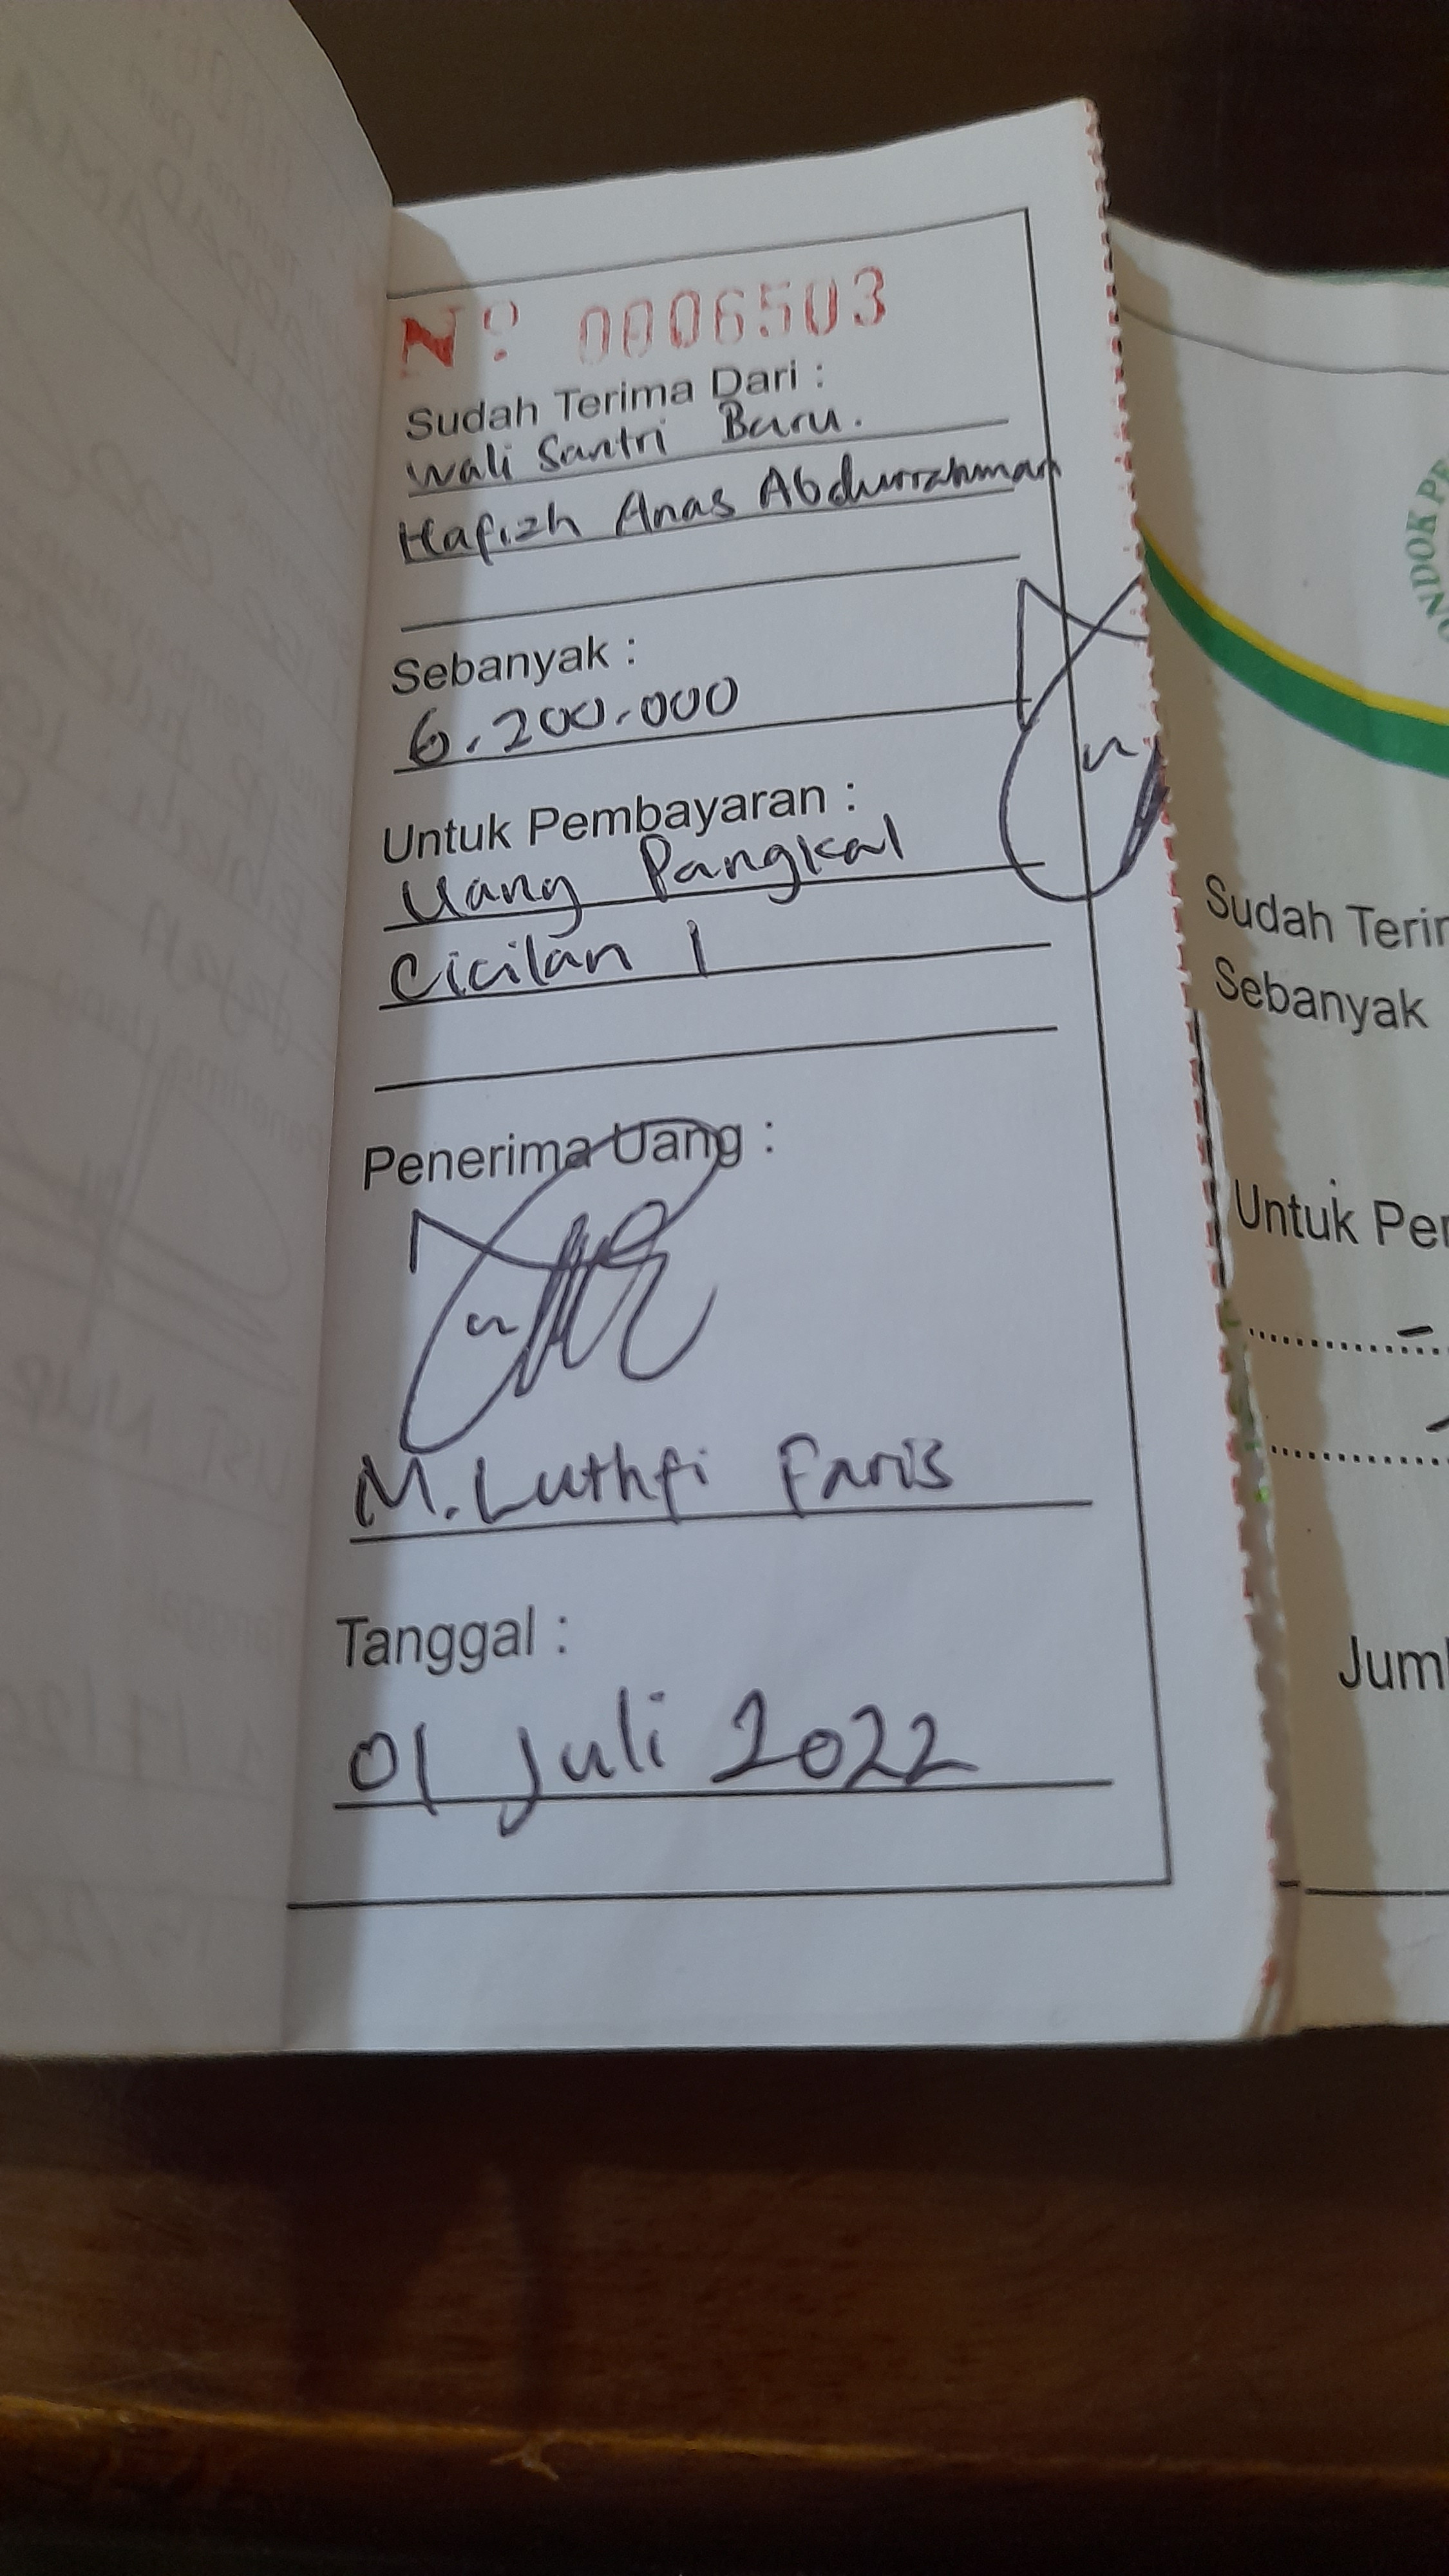 Nº 0006503
Sudah Terima Dari :
Wali Santri Baru.
Hafizh Anas Abdurrahman
Sebanyak :
6.200.000
Untuk Pembayaran :
Uang Pangkal
Cicilan 1
Penerima Uang :
M. Luthfi Faris
Tanggal :
01 Juli 2022
NDOK PE
Sudah Terin
Sebanyak
Untuk Per
Juml